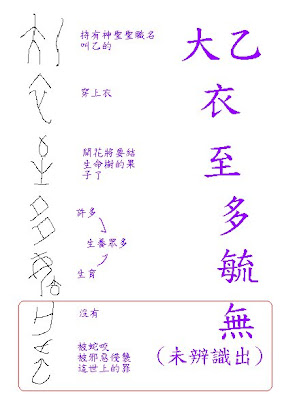 持有神聖聖職名
叫乙的
大乙
穿上衣
衣
開花將要結
生命樹的果
子了
至
許多
多
生養眾多
生育
毓
沒有
無
被蛇咬
被邪惡侵襲
這世上的罪
(未辨識出)